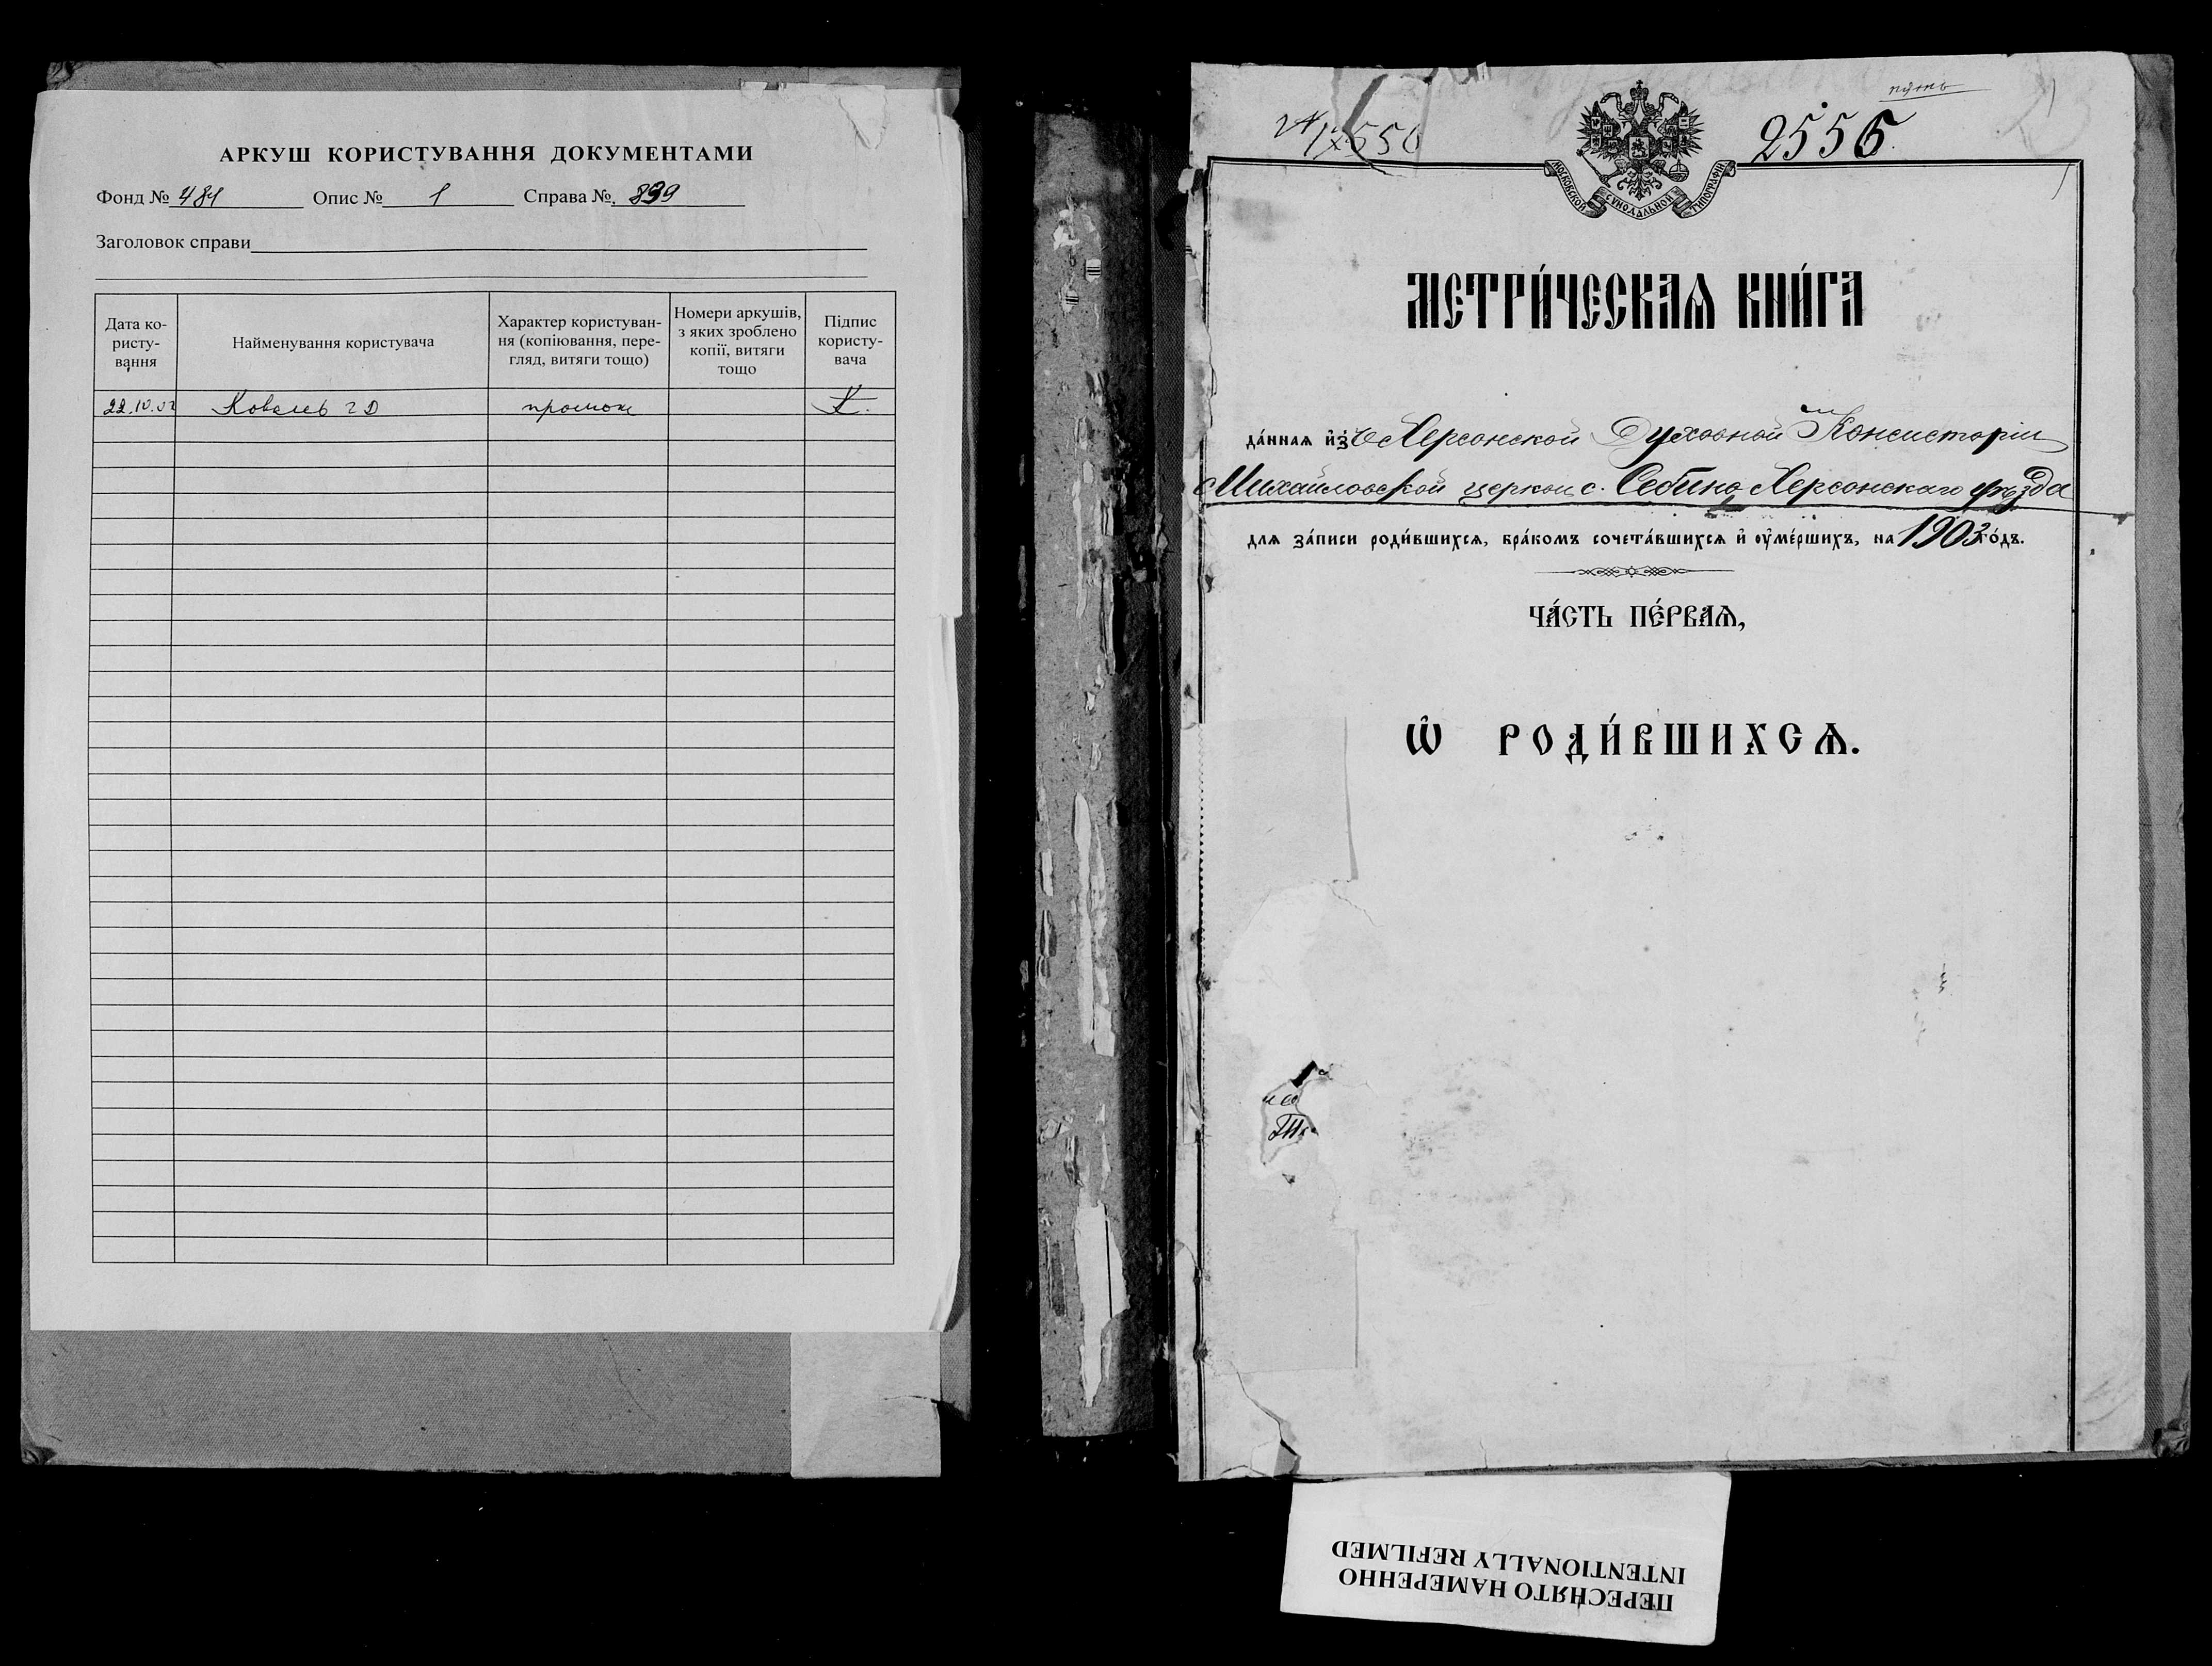 АРКУШ КОРИСТУВАННЯ ДОКУМЕНТАМИ
Фонд № 484 Опис № 1 Справа № 899
Заголовок справи
Дата ко-
ристу-
вання
Найменування користувача
Характер користуван-
ня (копіювання, пере-
гляд, витяги тощо)
Номери аркушів,
з яких зроблено
копії, витяги
тощо
Підпис
користу-
вача
22.10.02 Коваль
путь
2556
МОСКОВСКОЙ СѴНОДАЛЬНОЙ ТИПОГРАФІИ
МЕТРИ́ЧЕСКАѦ КНИ́ГА
да́ннаѧ и҆з̾ Херсонской Духовной Консисторіи
Михайловской церкви с. Себино Херсонскаго уѣзда
для за́писи роди́вшихсѧ, бра́комъ сочета́вшихсѧ и҆ оу҆ме́ршихъ, на 1903 го́дъ.
ЧА́СТЬ ПЕ́РВАѦ,
Ѡ҆ РОДИ́ВШИХСѦ.
ПЕРЕСНЯТО НАМЕРЕННО
INTENTIONALLY REFILMED